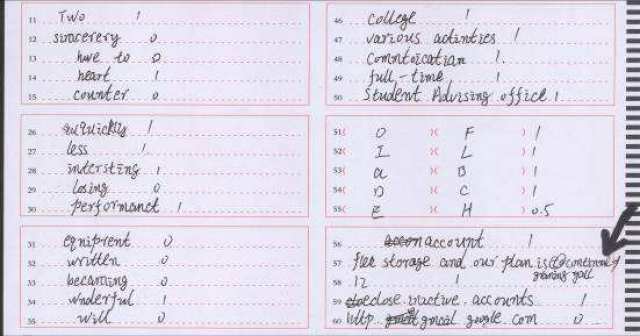 11 Two 1
12 sincerery 0
13 hwe to 0
14 heart 1
15 counter 0
26 quickly 1
27 less 1
28 intersting 1
29 losing 0
30 performanct 1
31 equiprent 0
32 written 0
33 becoming 0
34 wnderful 1
35 will 0
46 college 1
47 various activities 1
48 1.
49 full-time 1
50 Student Advising office 1
51( O )( F ) 1
52( I )( L ) 1
53( a )( B ) 1
54( D )( C ) 1
55( E )( H ) 0.5
56 account 1
57 storage and our plan is to continue
growing
58 12 1
59 close inactive accounts 1
60 http gmail google.com 0